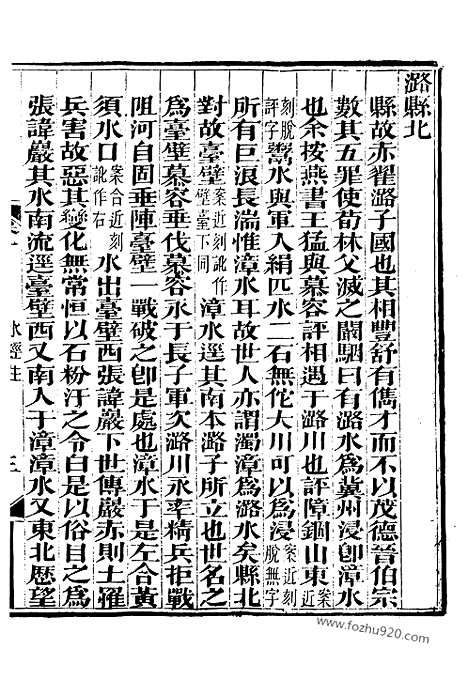 潞縣北
縣故赤翟潞子國也其相豐舒有儁才而不以茂德晉伯宗
數其五罪使荀林父滅之闞駰曰有潞水爲冀州浸卽漳水
也余按燕書王猛與慕容評相遇于潞川也評障錮山東案近刻脫評字
鬻水與軍入絹匹水二石無佗大川可以爲浸案近刻脫無字
所有巨浪長湍惟漳水耳故世人亦謂濁漳爲潞水矣縣北
對故臺壁案近刻訛作壁臺下同漳水逕其南本潞子所立也世名之
爲臺壁慕容垂伐慕容永于長子軍次潞川永率精兵拒戰
阻河自固垂陣臺壁一戰破之卽是處也漳水于是左合黃
須水口案合近刻訛作右水出臺壁西張諱巖下世傳巖赤則土罹
兵害故惡其變化無常恒以石粉汙之令白是以俗目之爲
張諱巖其水南流逕臺壁西又南入于漳漳水又東北歷望
水經注
三
www.fozhu920.com